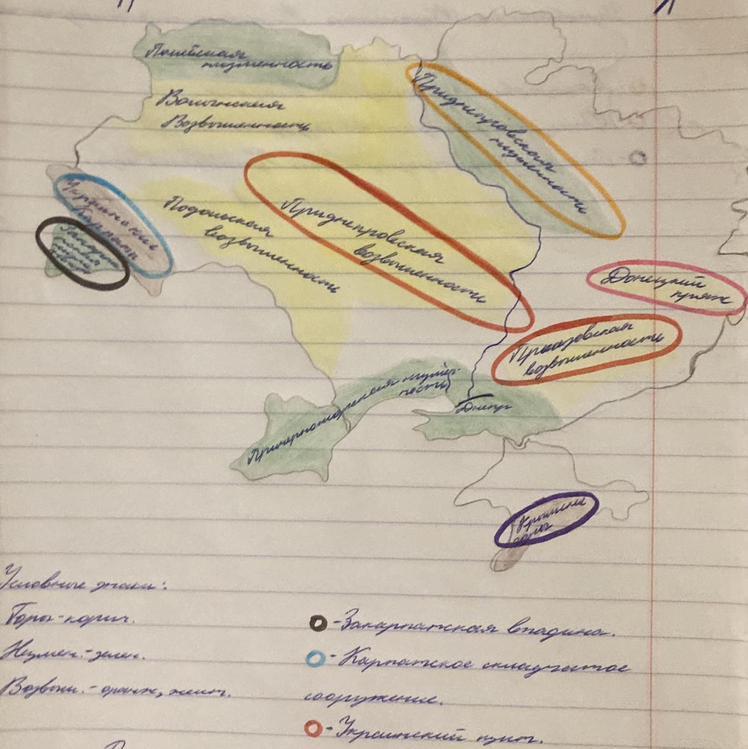 Полесская
низменность
Волынская
Возвышенность
Приднепровская
низменность
Украинские
Карпаты
Подольская
возвышенность
Приднепровская
возвышенность
Донецкий
кряж
Приазовская
возвышенность
Причерноморская низмен-
ность
Днепр
Крымские
горы
Условные знаки:
Горы-корич.
Низмен.-зелен.
Возвыш.-оранж, желт.
-Закарпатская впадина.
-Карпатское складчатое
сооружение.
-Украинский щит.